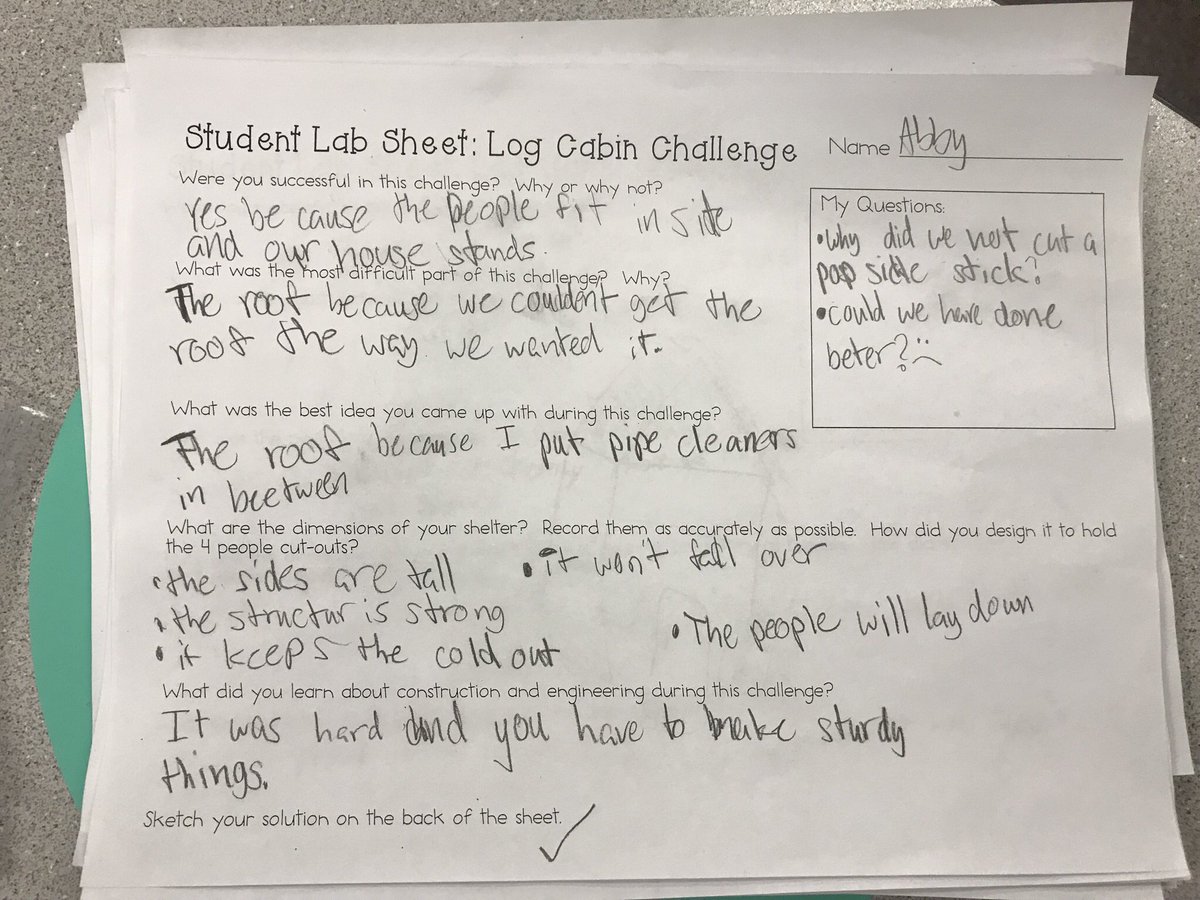 Student Lab Sheet: Log Cabin Challenge
Name Abby
Were you successful in this challenge? Why or why not?
Yes be cause the people fit in side
and our house stands.
What was the most difficult part of this challenge? Why?
The roof because we couldn't get the
roof the way we wanted it.
My Questions:
•why did we not cut a
pop sicle stick?
•could we have done
beter? :(
What was the best idea you came up with during this challenge?
The roof because I put pipe cleaners
in beetween
What are the dimensions of your shelter? Record them as accurately as possible. How did you design it to hold
the 4 people cut-outs?
•the sides are tall
•the structur is strong
•it keeps the cold out
•it won't fall over
•The people will lay down
What did you learn about construction and engineering during this challenge?
It was hard and you have to make sturdy
things.
Sketch your solution on the back of the sheet. ✓